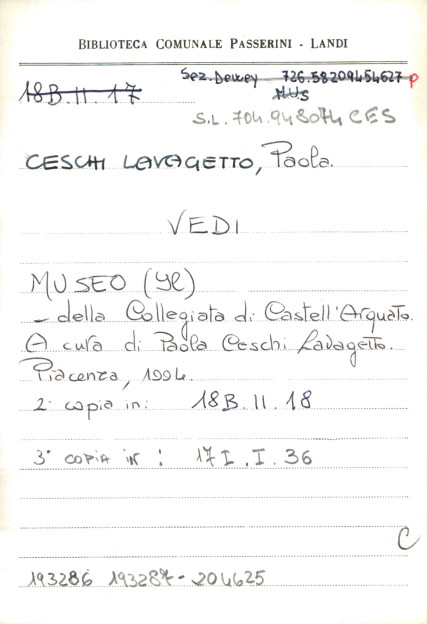 BIBLIOTECA COMUNALE PASSERINI - LANDI
18B.II.17
Sez. Dewey 726.58209454627 P
MUS
S.L. 704.948074 CES
CESCHI LAVAGETTO, Paola.
VEDI
MUSEO (Il)
- della Collegiata di Castell'Arquato.
A cura di Paola Ceschi Lavagetto.
Piacenza, 1994.
2ᵃ copia in: 18B.II.18
3ᵃ COPIA IN: 17I.I.36
C
193286 193287 - 204625